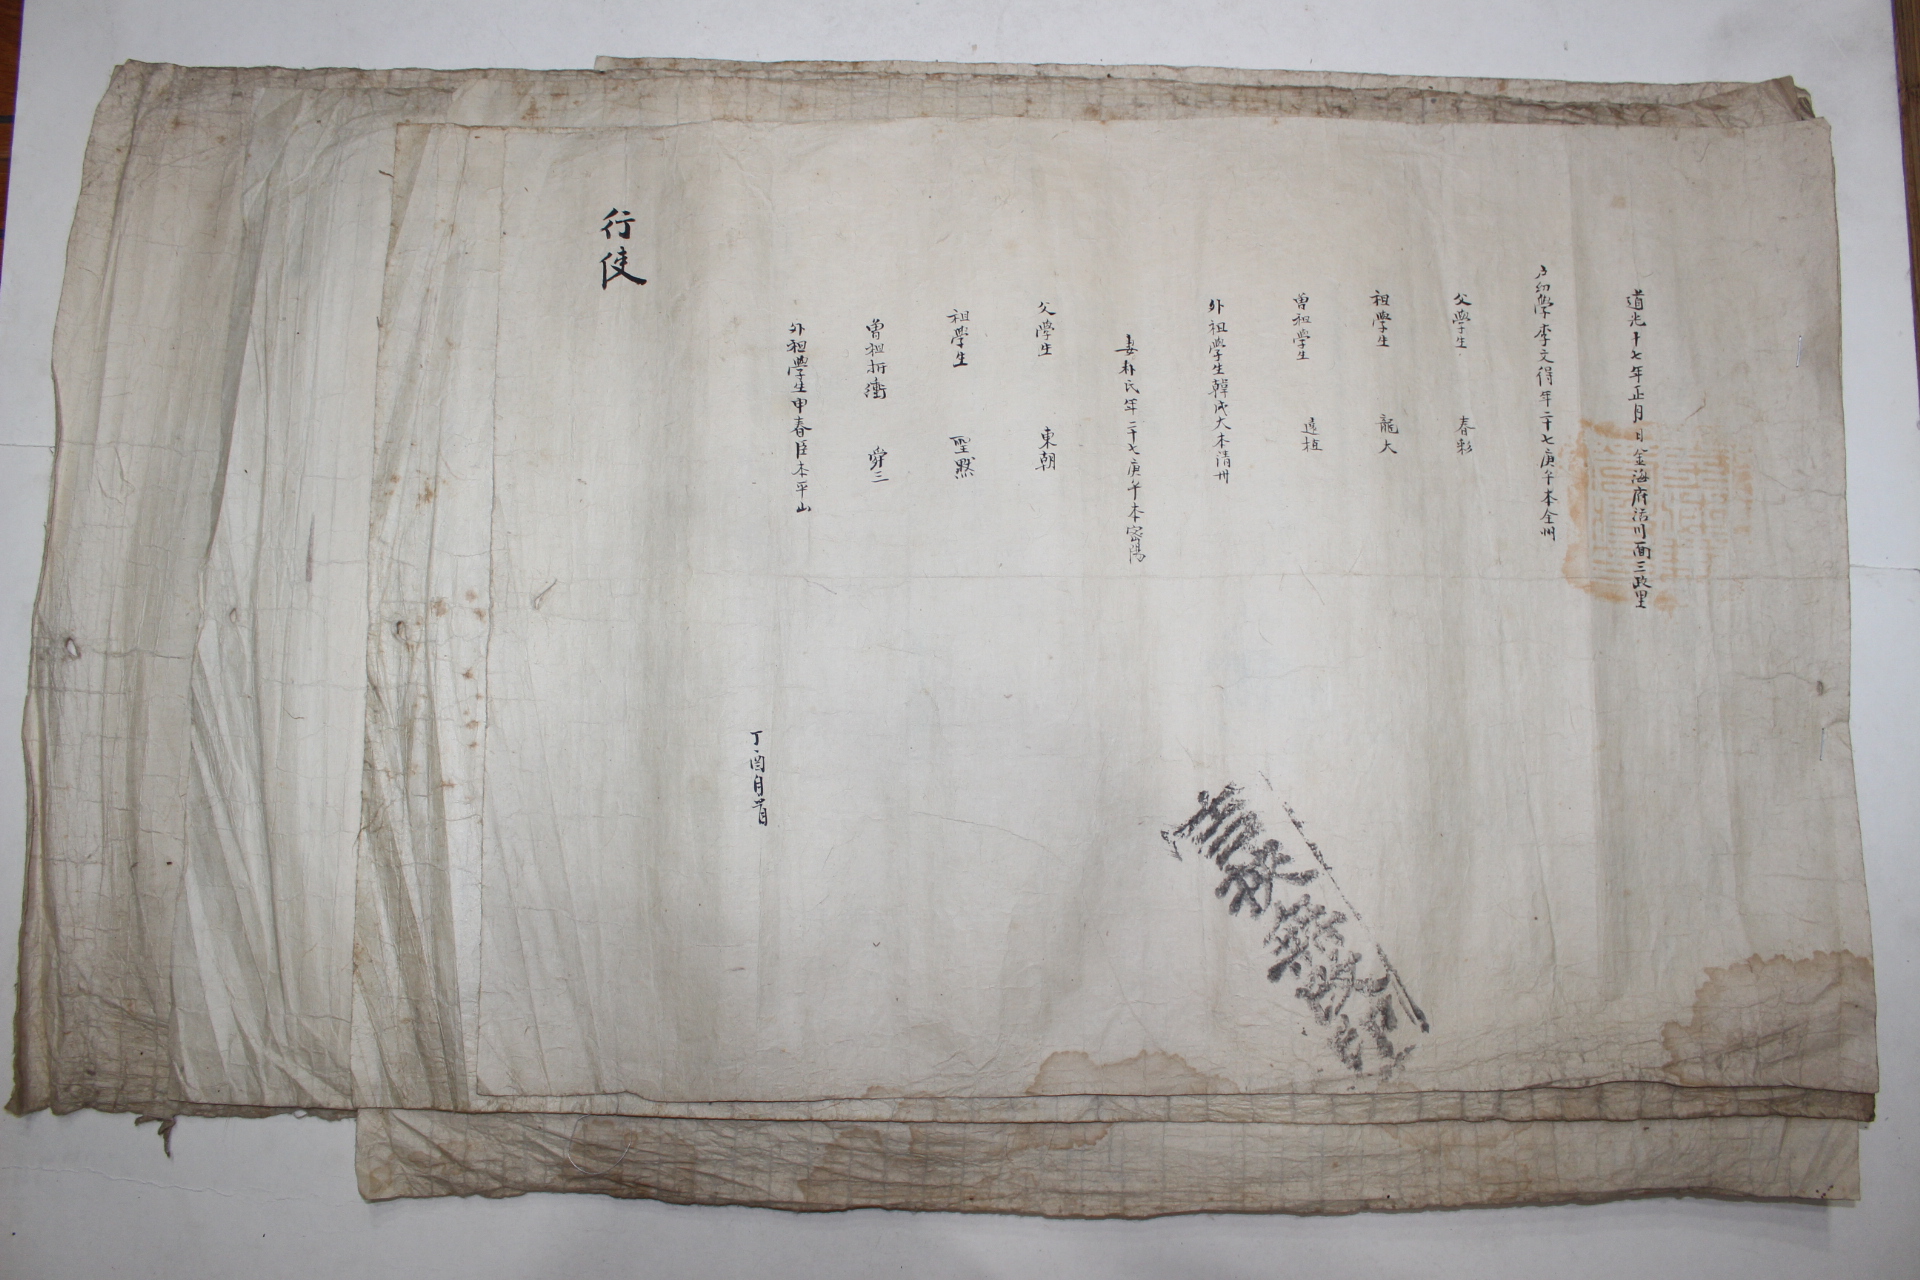 道光十七年正月 日金海府活川面三政里
幼學李文得年二十七庚午本全州
父學生 春彩
祖學生 龍大
曾祖學生 遠植
外祖學生韓成大本清州
妻朴氏年二十七庚午本密陽
父學生 東朝
祖學生 聖黙
曾祖折衝 舜三
外祖學生申春臣本平山
丁酉
行使